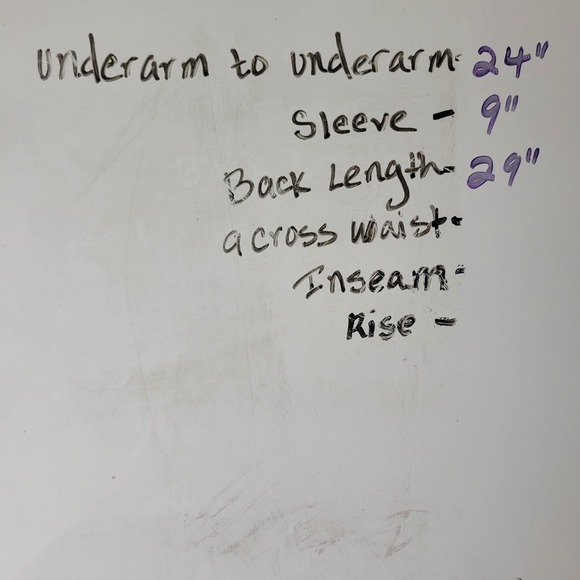 underarm to underarm- 24"
Sleeve - 9"
Back Length- 29"
across waist-
Inseam-
Rise -